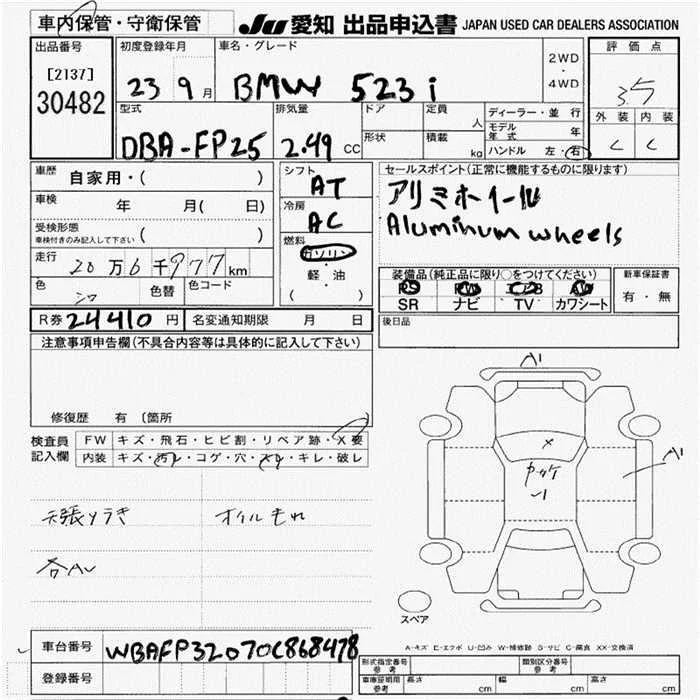 車内保管・守衛保管
JU 愛知 出品申込書 JAPAN USED CAR DEALERS ASSOCIATION
出品番号
[2137]
30482
初度登録年月
23 9月
車名・グレード
BMW 523i
2WD
・
4WD
評価点
3.5
外装 内装
C C
型式
DBA-FP25
排気量
2.49 CC
ドア
形状
定員
人
積載
kg
ディーラー・並行
モデル年式 年
ハンドル 左・右
車歴 自家用・( )
車検 年 月( 日)
受検形態
車検付きのみ記入して下さい ( )
走行 20万6千977km
色 シロ
色替
色コード
シフト
AT
冷房
AC
燃料
ガソリン
・
軽・油
( )
セールスポイント(正常に機能するものに限ります)
アリミホイール
Aluminum wheels
装備品(純正品に限り○をつけてください)
PS PW AB
SR ナビ TV カワシート
新車保証書
有・無
R券 24410 円
名変通知期限 月 日
後日品
注意事項申告欄(不具合内容等は具体的に記入して下さい)
修復歴 有 〔箇所
検査員
記入欄
FW キズ・飛石・ヒビ割・リペア跡・X要
内装 キズ・汚レ・コゲ・穴・スレ・キレ・破レ
天張りうき
オイルもれ
各AU
A1
A1
X
スペア
A-キズ E-エクボ U-凹み W-補修跡 S-サビ C-腐食 XX-交換済
車台番号 WBAFP32070C868478
登録番号
形式指定番号
参考
類別区分番号
参考
車庫証明用
参考
長さ cm
幅 cm
高さ cm